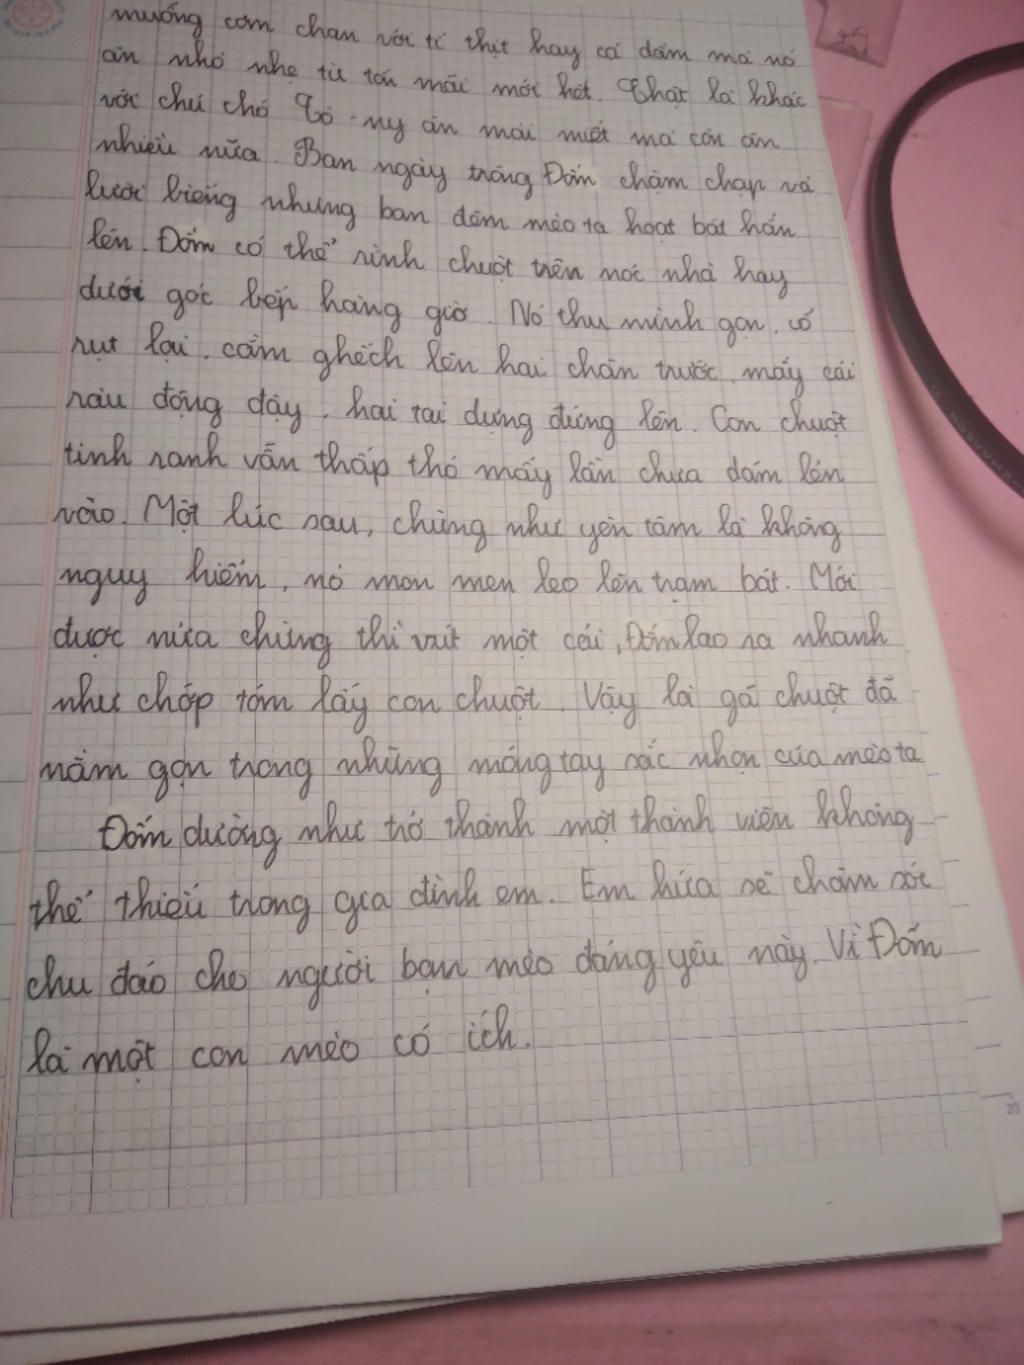 muống cơm chan với tí thịt hay cá dầm mà nó
ăn nhỏ nhẹ từ tốn mãi mới hết. Thật là khác
với chú chó Tô-ny ăn mải miết mà còn ăn
nhiều nữa. Ban ngày trông Đốm chậm chạp và
lười biếng nhưng ban đêm mèo ta hoạt bát hẳn
lên. Đốm có thể rình chuột trên nóc nhà hay
dưới góc bếp hàng giờ. Nó thu mình gọn, cổ
rụt lại, cằm ghếch lên hai chân trước, mấy cái
râu động đậy, hai tai dựng đứng lên. Con chuột
tinh ranh vẫn thấp thó mấy lần chưa dám lẻn
vào. Một lúc sau, chừng như yên tâm là không
nguy hiểm, nó mon men leo lên trạm bát. Mới
được nửa chừng thì vút một cái, Đốm lao ra nhanh
như chớp tóm lấy con chuột. Vậy là gã chuột đã
nằm gọn trong những móng tay sắc nhọn của mèo ta
Đốm dường như trở thành một thành viên không
thể thiếu trong gia đình em. Em hứa sẽ chăm sóc
chu đáo cho người bạn mèo đáng yêu này. Vì Đốm
là một con mèo có ích.
20